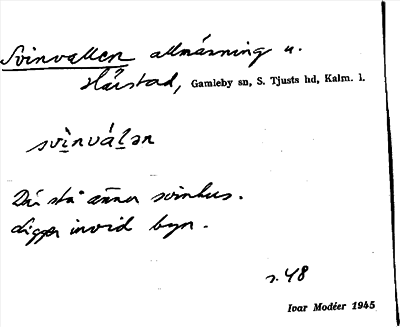 Svinvallen allmänning u.
Hårstad, Gamleby sn, S. Tjusts hd, Kalm. l.
svìnválən
Där stå ännu svinhus.
Ligger invid byn.
s. 48
Ivar Modéer 1945